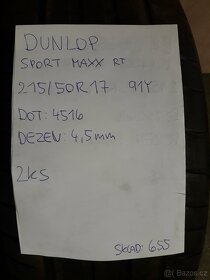 DUNLOP
SPORT MAXX RT
215/50R17 91Y
DOT: 4516
DEZEN: 4,5mm
2ks
SKLAD: 655
Bazoš.cz